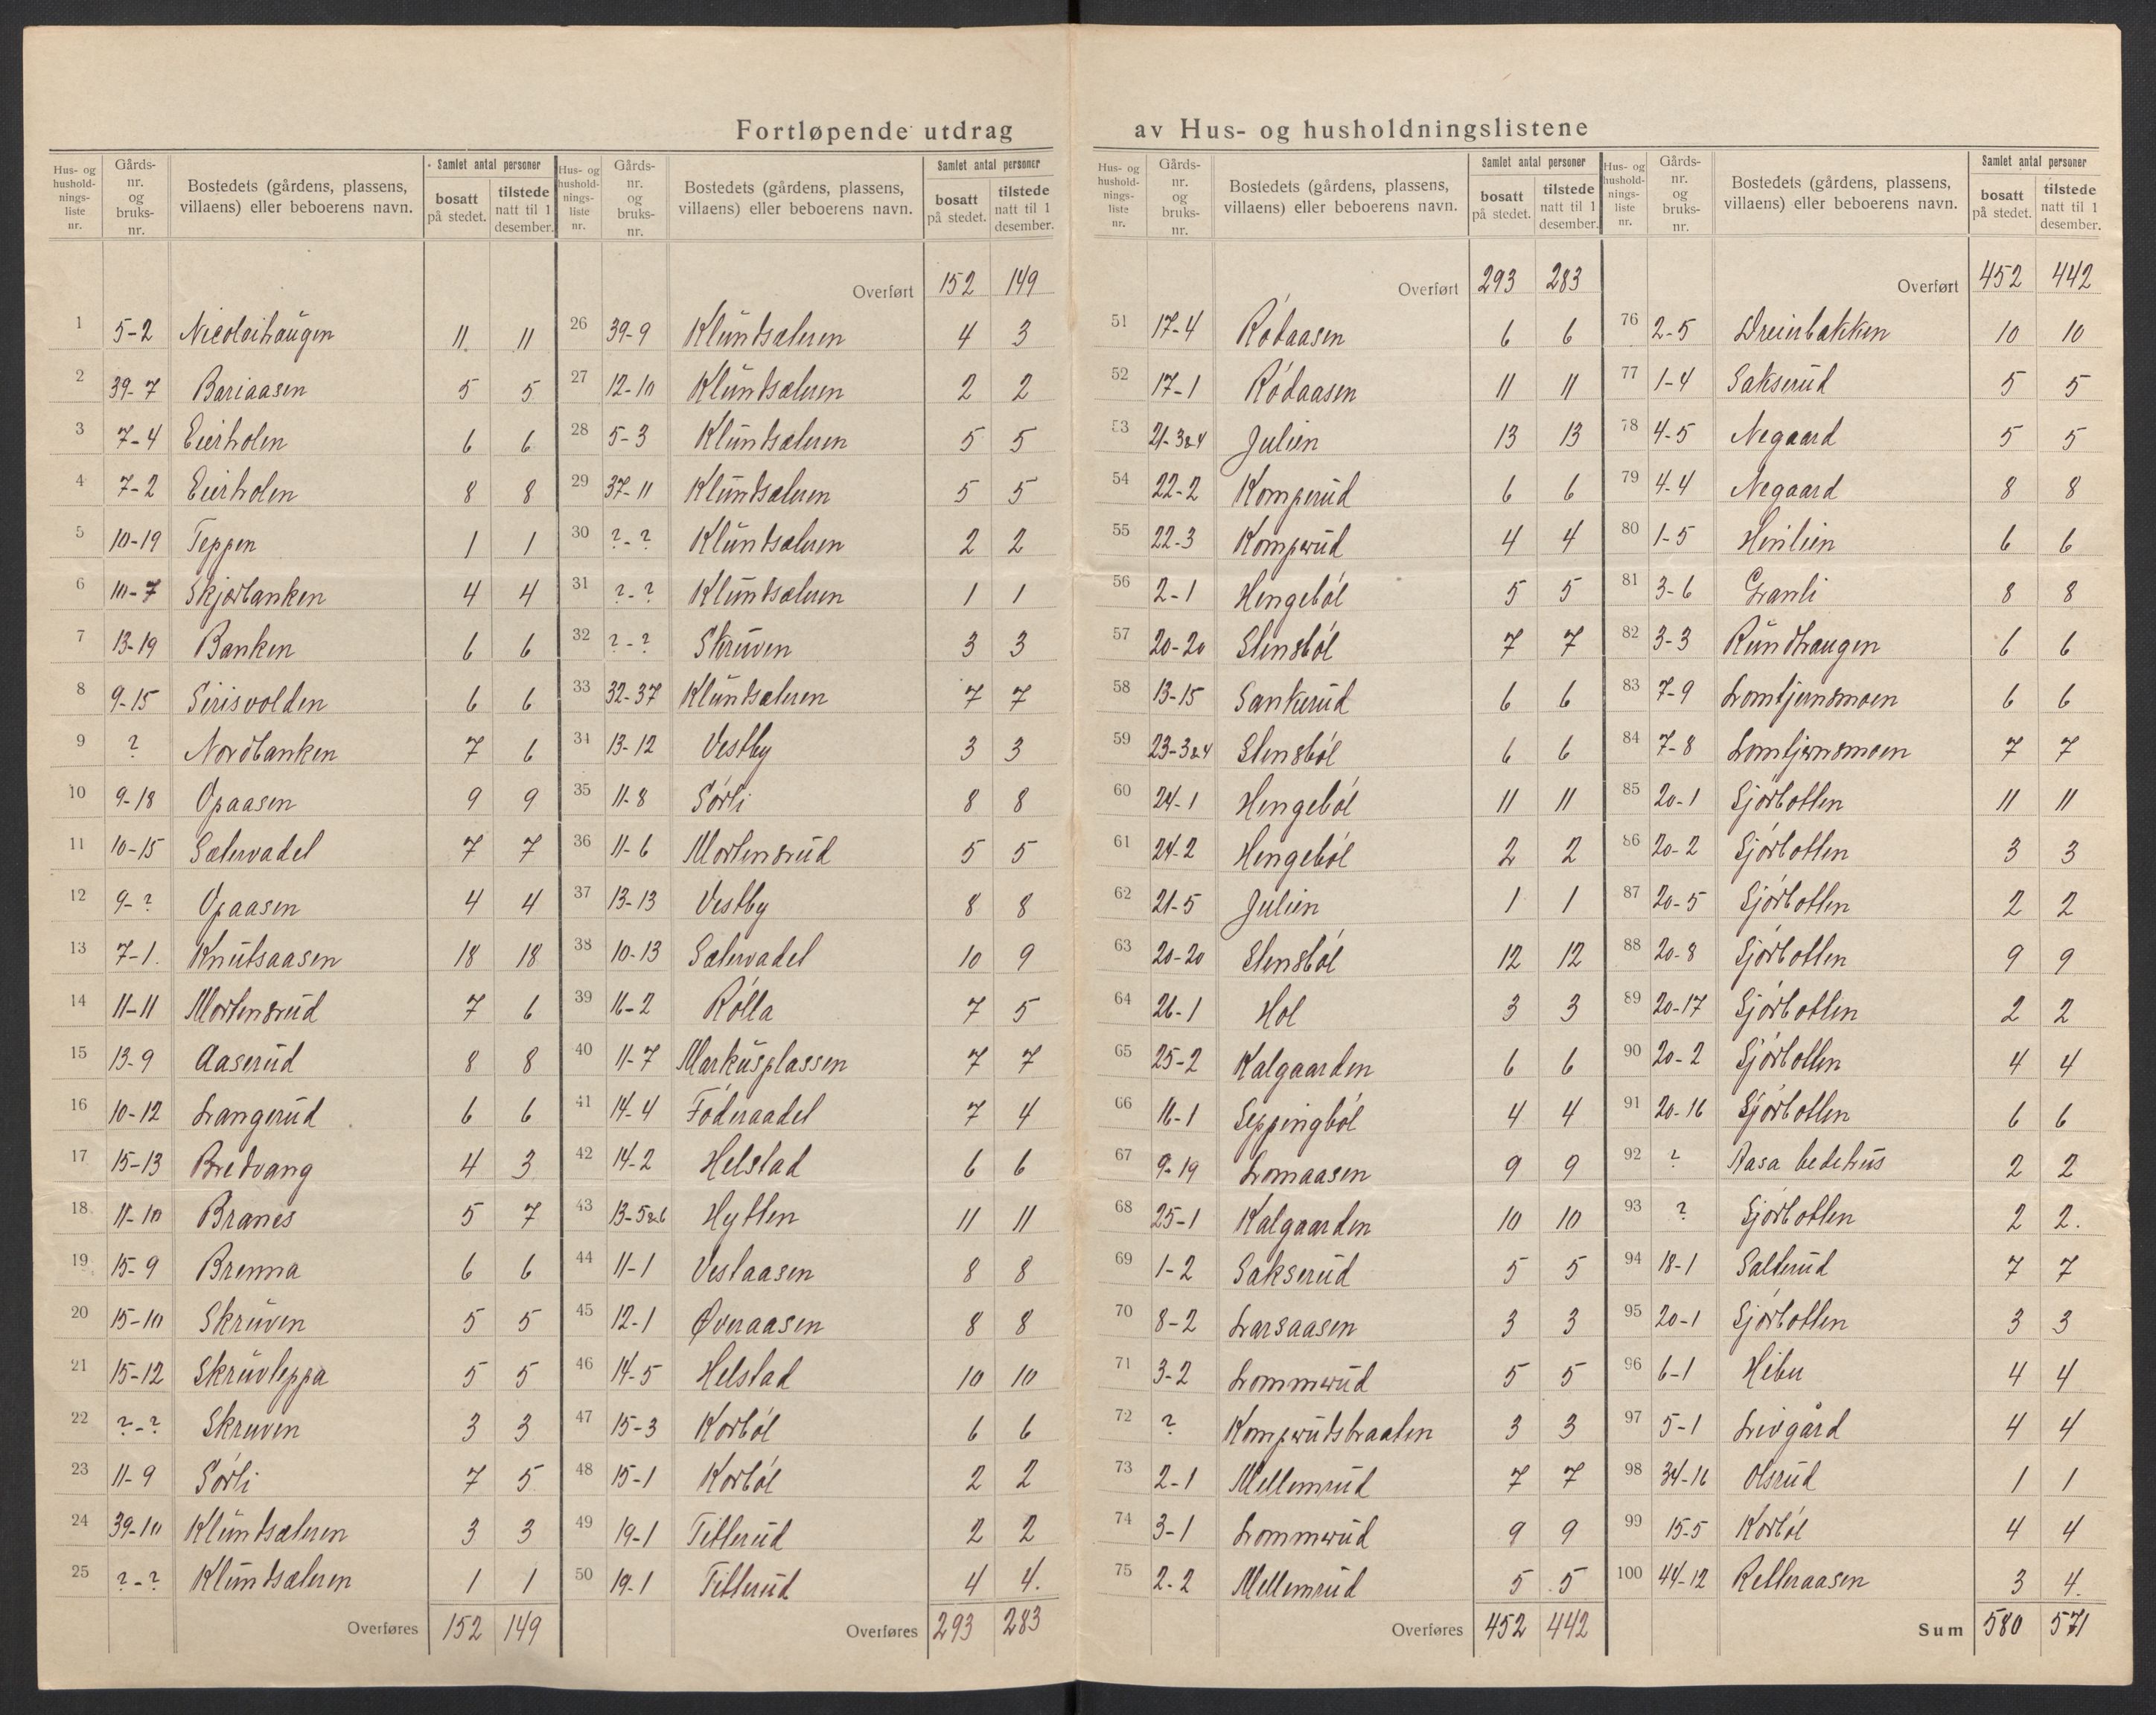 Fortløpende utdrag av Hus- og husholdningslistene
Hus- og husholdningsliste nr. | Gårdsnr. og bruksnr. | Bostedets (gårdens, plassens, villaens) eller beboerens navn. | Samlet antal personer bosatt på stedet. | tilstede natt til 1 desember.
1 5-2 Nicolaihaugen 11 11
2 39-7 Bariaasen 5 5
3 7-4 Eierholen 6 6
4 7-2 Eierholen 8 8
5 10-19 Teppen 1 1
6 10-7 Skjørbanken 4 4
7 13-19 Banken 6 6
8 9-15 Sirisvolden 6 6
9 ? Nordbanken 7 6
10 9-18 Opaasen 9 9
11 10-15 Sætervadet 7 7
12 9-? Opaasen 4 4
13 7-1. Knutsaasen 18 18
14 11-11 Mortensrud 7 6
15 13-9 Aaserud 8 8
16 10-12 Langerud 6 6
17 15-13 Bredvang 4 3
18 11-10 Branes 5 7
19 15-9 Brenna 6 6
20 15-10 Skruven 5 5
21 15-12 Skruvteppa 5 5
22 ?-? Skruven 3 3
23 11-9 Sørli 7 5
24 39-10 Klundsæteren 3 3
25 ?-? Klundsæteren 1 1
Overføres 152 149
Hus- og husholdningsliste nr. | Gårdsnr. og bruksnr. | Bostedets (gårdens, plassens, villaens) eller beboerens navn. | Samlet antal personer bosatt på stedet. | tilstede natt til 1 desember.
Overført 152 149
26 39-9 Klundsæteren 4 3
27 12-10 Klundsæteren 2 2
28 5-3 Klundsæteren 5 5
29 37-11 Klundsæteren 5 5
30 ?-? Klundsæteren 2 2
31 ?-? Klundsæteren 1 1
32 ?-? Skruven 3 3
33 32-37 Klundsæteren 7 7
34 13-12 Vestby 3 3
35 11-8 Sørli 8 8
36 11-6 Mortensrud 5 5
37 13-13 Vestby 8 8
38 10-13 Sætervadet 10 9
39 16-2 Rolla 7 5
40 11-7 Markusplassen 7 7
41 14-4 Föderaadet 7 4
42 14-2 Helstad 6 6
43 13-5&6 Hytten 11 11
44 11-1 Vestaasen 8 8
45 12-1 Øveraasen 8 8
46 14-5 Helstad 10 10
47 15-3 Korbøl 6 6
48 15-1 Korbøl 2 2
49 19-1 Titterud 2 2
50 19-1 Titterud 4 4.
Overføres 293 283
Hus- og husholdningsliste nr. | Gårdsnr. og bruksnr. | Bostedets (gårdens, plassens, villaens) eller beboerens navn. | Samlet antal personer bosatt på stedet. | tilstede natt til 1 desember.
Overført 293 283
51 17-4 Rødaasen 6 6
52 17-1 Rødaasen 11 11
53 21-3&4 Julien 13 13
54 22-2 Komperud 6 6
55 22-3 Komperud 4 4
56 2-1 Hengebøl 5 5
57 20-20 Stensbøl 7 7
58 13-15 Sankerud 6 6
59 23-3&4 Stensbøl 6 6
60 24-1 Hengebøl 11 11
61 24-2 Hengebøl 2 2
62 21-5 Julien 1 1
63 20-20 Stensbøl 12 12
64 26-1 Hol 3 3
65 25-2 Kalgaarden 6 6
66 16-1 Seppingbøl 4 4
67 9-19 Lomaasen 9 9
68 25-1 Kalgaarden 10 10
69 1-2 Sakserud 5 5
70 8-2 Larsaasen 3 3
71 3-2 Lommerud 5 5
72 ? Komperudsbraaten 3 3
73 2-1 Mellemrud 7 7
74 3-1 Lommerud 9 9
75 2-2 Mellemrud 5 5
Overføres 452 442
Hus- og husholdningsliste nr. | Gårdsnr. og bruksnr. | Bostedets (gårdens, plassens, villaens) eller beboerens navn. | Samlet antal personer bosatt på stedet. | tilstede natt til 1 desember.
Overført 452 442
76 2-5 Dreierbakken 10 10
77 1-4 Sakserud 5 5
78 4-5 Negaard 5 5
79 4-4 Negaard 8 8
80 1-5 Henlien 6 6
81 3-6 Granli 8 8
82 3-3 Rundhaugen 6 6
83 7-9 Lomtjernsmoen 6 6
84 7-8 Lomtjernsmoen 7 7
85 20-1 Sjørbotten 11 11
86 20-2 Sjørbotten 3 3
87 20-5 Sjørbotten 2 2
88 20-8 Sjørbotten 9 9
89 20-17 Sjørbotten 2 2
90 20-2 Sjørbotten 4 4
91 20-16 Sjørbotten 6 6
92 ? Aasa bedehus 2 2
93 ? Sjørbotten 2 2.
94 18-1 Salterud 7 7
95 20-1 Sjørbotten 3 3
96 6-1 Hibu 4 4
97 5-1 Livgård 4 4
98 34-16 Olsrud 1 1
99 15-5 Korbøl 4 4
100 44-12 Retteraasen 3 4.
Sum 580 571